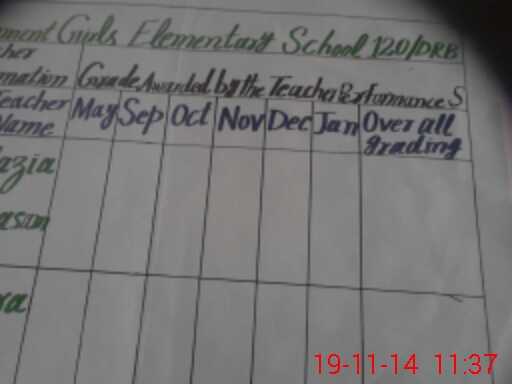 Girls Elementary School 120/DRB
Grade Awarded by the Teacher Performance S
Teacher
Name
May Sep Oct Nov Dec Jan Over all
grading
19-11-14 11:37